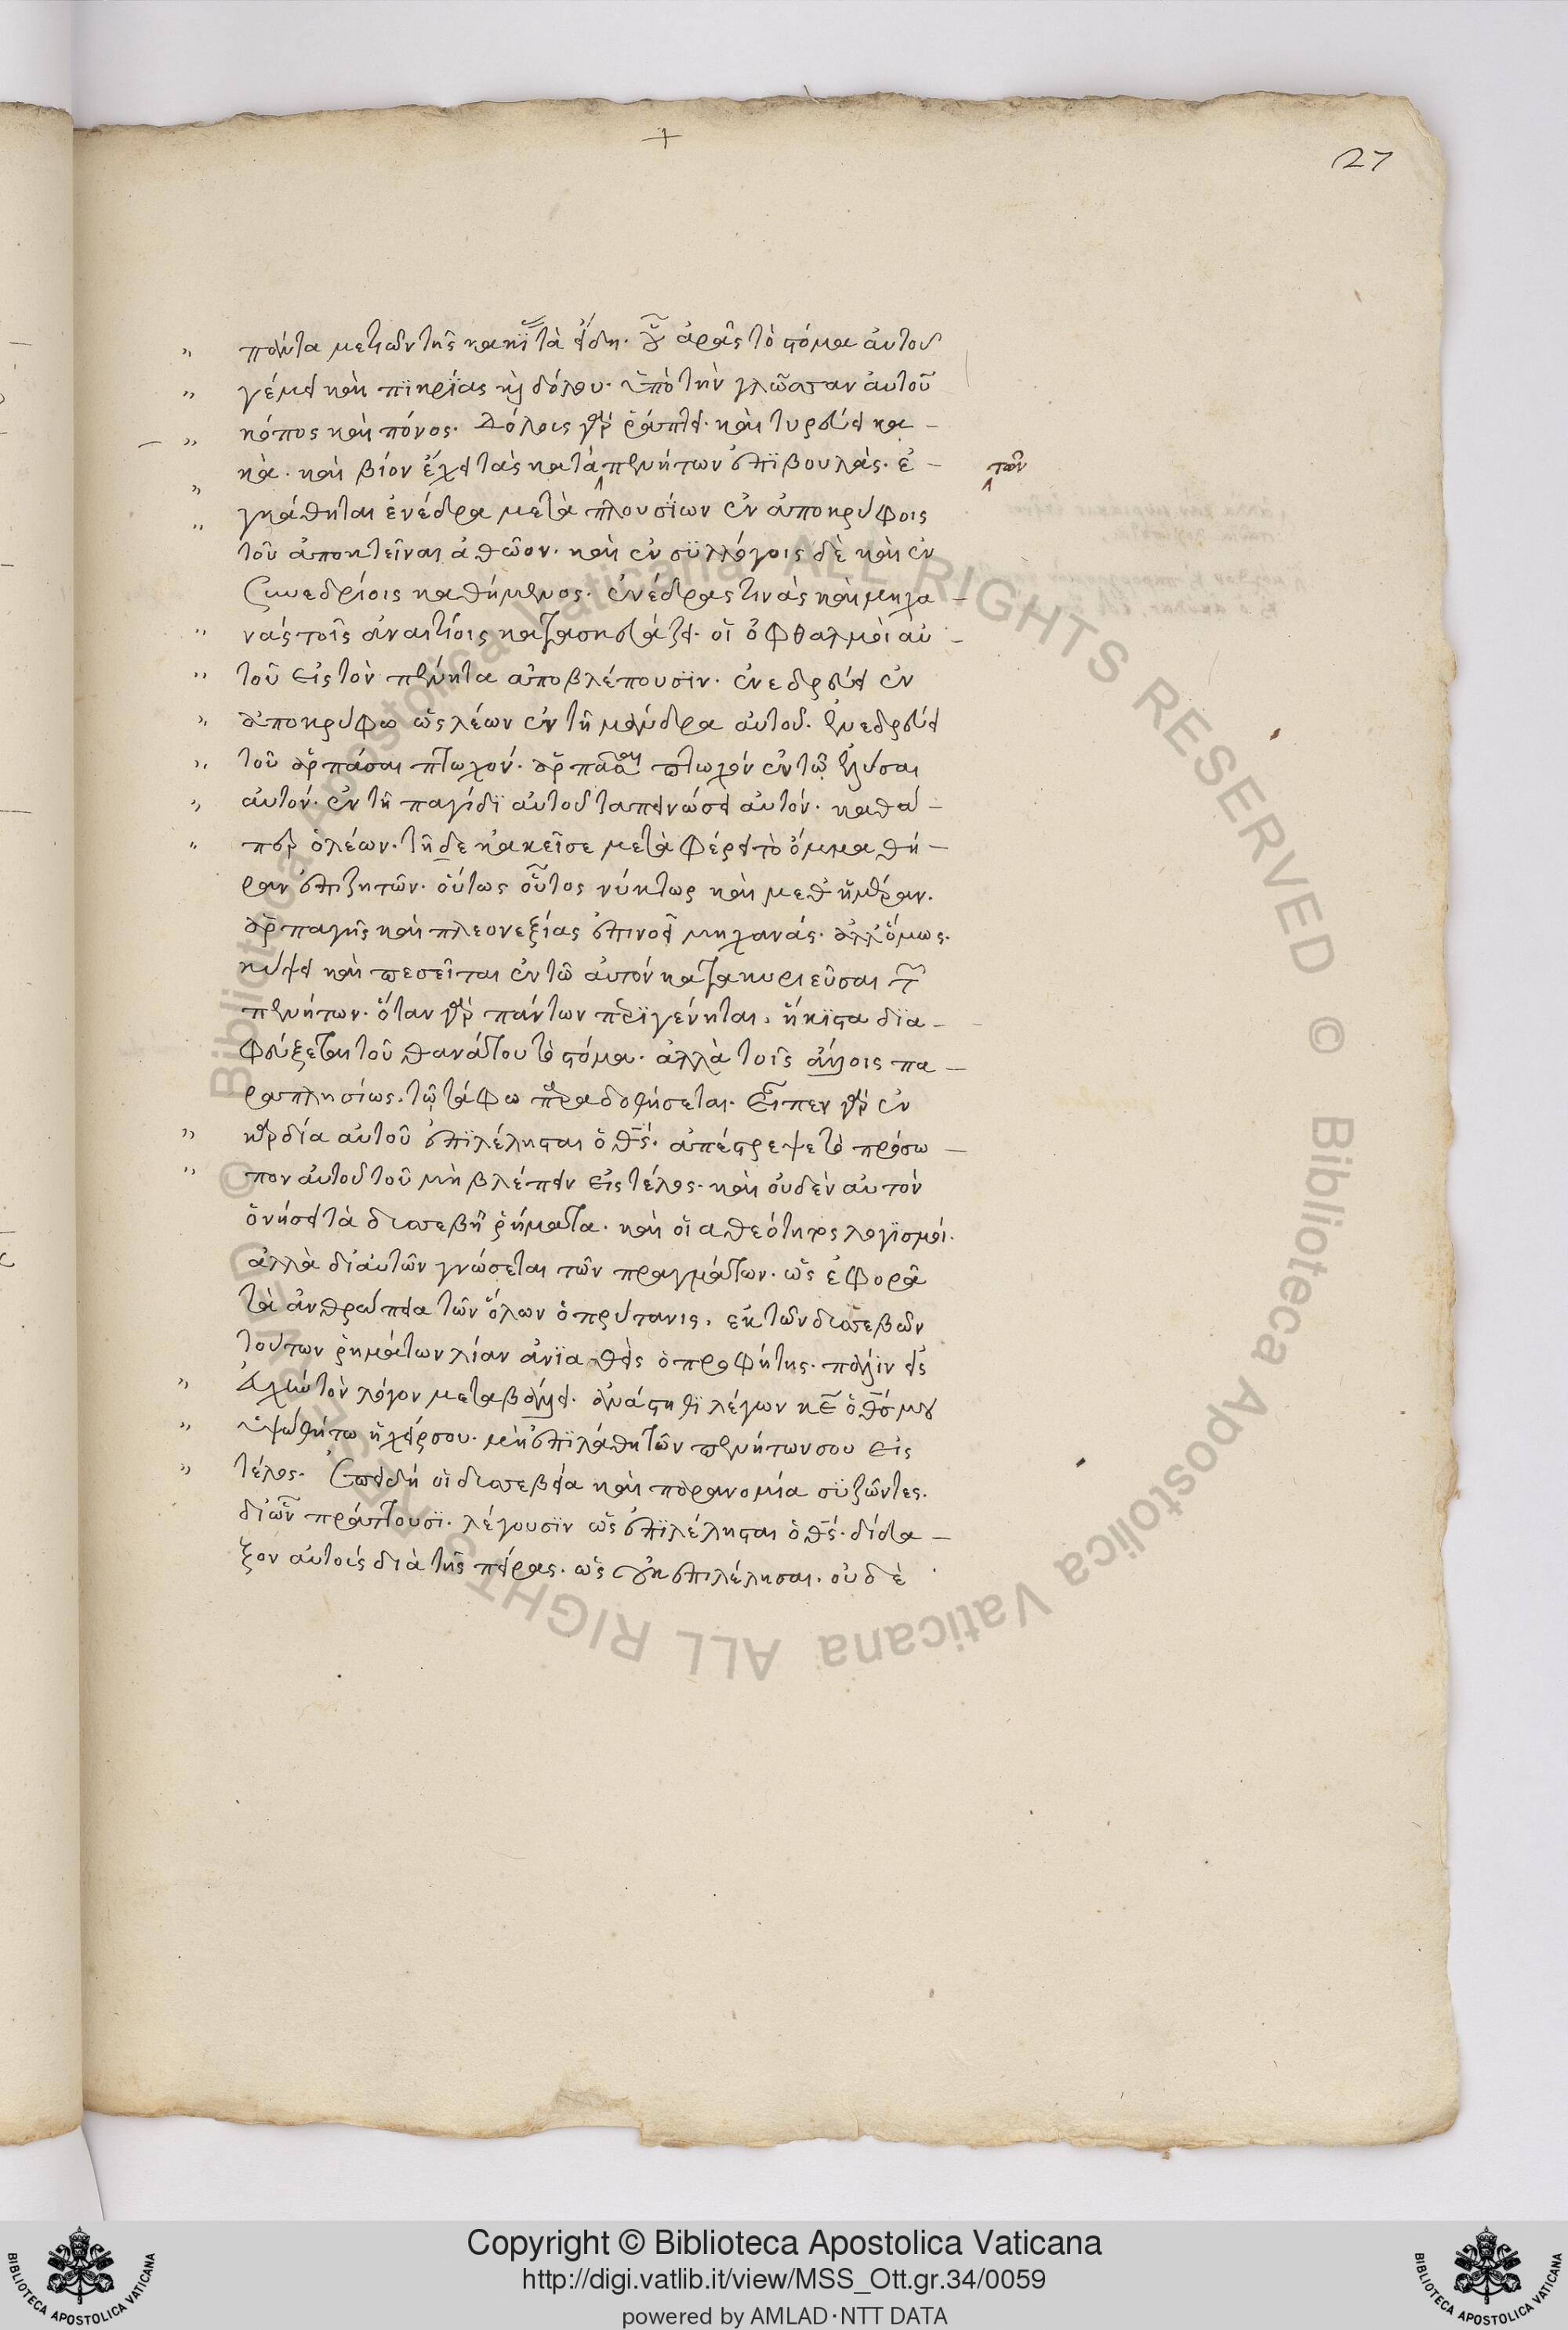 +
27
πάντα μετιὼν τῆς κακίας τὰ εἴδη· οὗ ἀρᾶς τὸ στόμα αὐτοῦ
γέμει καὶ πικρίας καὶ δόλου· ὑπὸ τὴν γλῶσσαν αὐτοῦ
κόπος καὶ πόνος· Δόλοις γὰρ ῥάπτει· καὶ τυρεύει κα–
κὰ· καὶ βίον ἔχει τὰς κατὰ πενήτων ἐπϊβουλὰς· ἐ–
τῶν
γκάθηται ἐνέδρα μετὰ πλουσίων ἐν ἀποκρύφοις
τοῦ ἀποκτεῖναι ἀθῶον· καὶ ἐν συλλόγοις δὲ καὶ ἐν
συνεδρίοις καθήμενος· ἐνέδρας τινὰς καὶ μηχα–
νάς τοῖς ἀναιτίοις κατασκευάζει· οἱ ὀφθαλμοὶ αὐ–
τοῦ εἰς τὸν πένητα ἀποβλέπουσϊν· ἐνεδρεύει ἐν
ἀποκρύφω ὡς λέων ἐν τῆ μάνδρα αὐτοῦ· ἐνεδρεύει
τοῦ ἁρπάσαι πτωχόν· ἁρπάσαι πτωχόν ἐν τῷ ἑλκύσαι
αὐτόν· ἐν τῆ παγίδϊ αὐτοῦ ταπεινώσει αὐτόν· καθά–
περ ὁ λέων· τῆδε κἀκεῖσε μεταφέρει τὸ ὄμμα θή–
ραν ἐπιζητῶν· οὕτως οὗτος νύκτωρ καὶ μεθ ἡμέραν·
ἁρπαγῆς καὶ πλεονεξίας ἐπινοεῖ μηχανάς· ἀλλ ὅμως·
κύψει καὶ πεσεῖται ἐν τῶ αὐτόν κατακυριεῦσαι τῶν
πενήτων· ὅταν γὰρ πάντων περϊγένηται, ἥκϊστα δϊα–
φεύξεται τοῦ θανάτου τὸ στόμα· ἀλλὰ τοῖς ἄλλοις πα–
ραπλησίως· τῷ τάφω παραδοθήσεται· Εἶπεν γὰρ ἐν
καρδία αὐτοῦ ἐπϊλέλησται ὁ θς· ἀπέστρεψε τὸ πρόσω–
πον αὐτοῦ τοῦ μὴ βλέπειν εἰς τέλος· καὶ οὐδὲν αὐτόν
ὀνήσει τὰ δυσσεβῆ ῥήματα· καὶ οἱ ἀθεότητος λογϊσμοί·
ἀλλὰ δι αὐτῶν γνώσεται τῶν πραγμάτων· ὡς ἐφορᾶ
τὰ ἀνθρώπεια τῶν ὅλων ὁ πρύτανις, ἐκ τῶν δυσσεβῶν
τούτων ῥημάτων λίαν ἀνϊαθεὶς ὁ προφήτης· πάλϊν εἰς
εὐχὴν τὸν λόγον μεταβάλλει· ἀνάστηθϊ λέγων κε ὁ θς μου
ὑψωθήτω ἡ χείρ σου· μὴ ἐπϊλάθη τῶν πενήτων σου εἰς
τέλος· ἐπειδὴ οἱ δυσσεβεία καὶ παρανομία συζῶντες·
δι ὧν πράττουσϊ· λέγουσϊν ὡς ἐπϊλέλησται ὁ θς· δίδα–
ξον αὐτοὺς διὰ τῆς πείρας· ὡς οὐκ ἐπιλέλησαι· οὐδὲ
Copyright © Biblioteca Apostolica Vaticana
http://digi.vatlib.it/view/MSS_Ott.gr.34/0059
powered by AMLAD·NTT DATA
BIBLIOTECA APOSTOLICA VATICANA
BIBLIOTECA APOSTOLICA VATICANA
© Biblioteca Apostolica Vaticana ALL RIGHTS RESERVED © Biblioteca Apostolica Vaticana ALL RIGHTS RESERVED